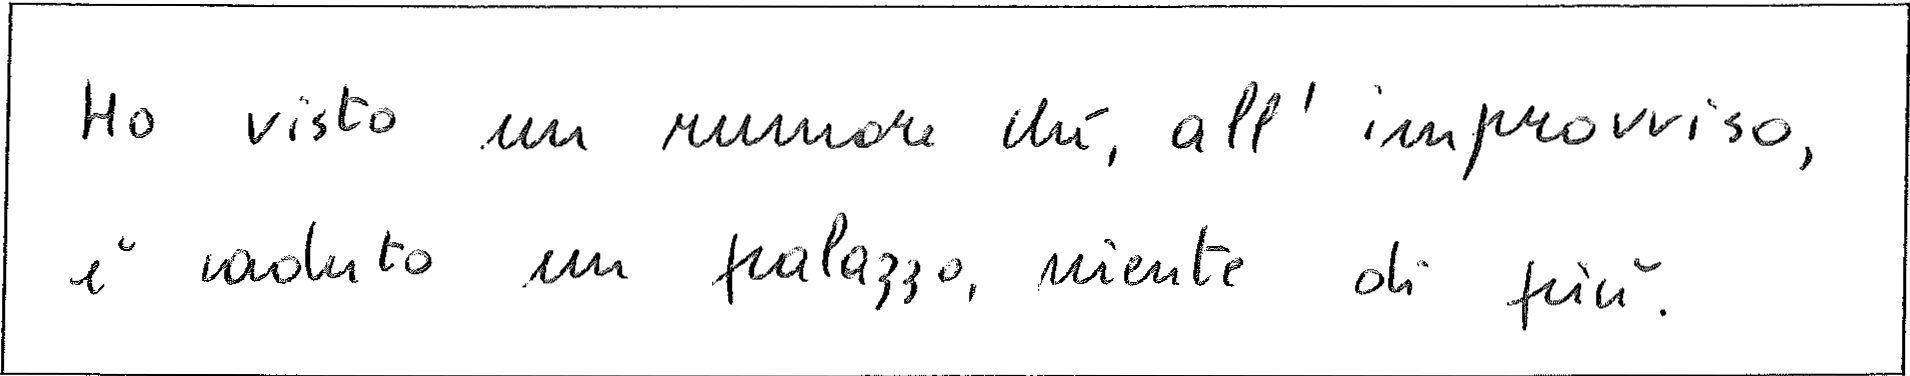 Ho visto un rumore che, all'improvviso,
è caduto un palazzo, niente di più.